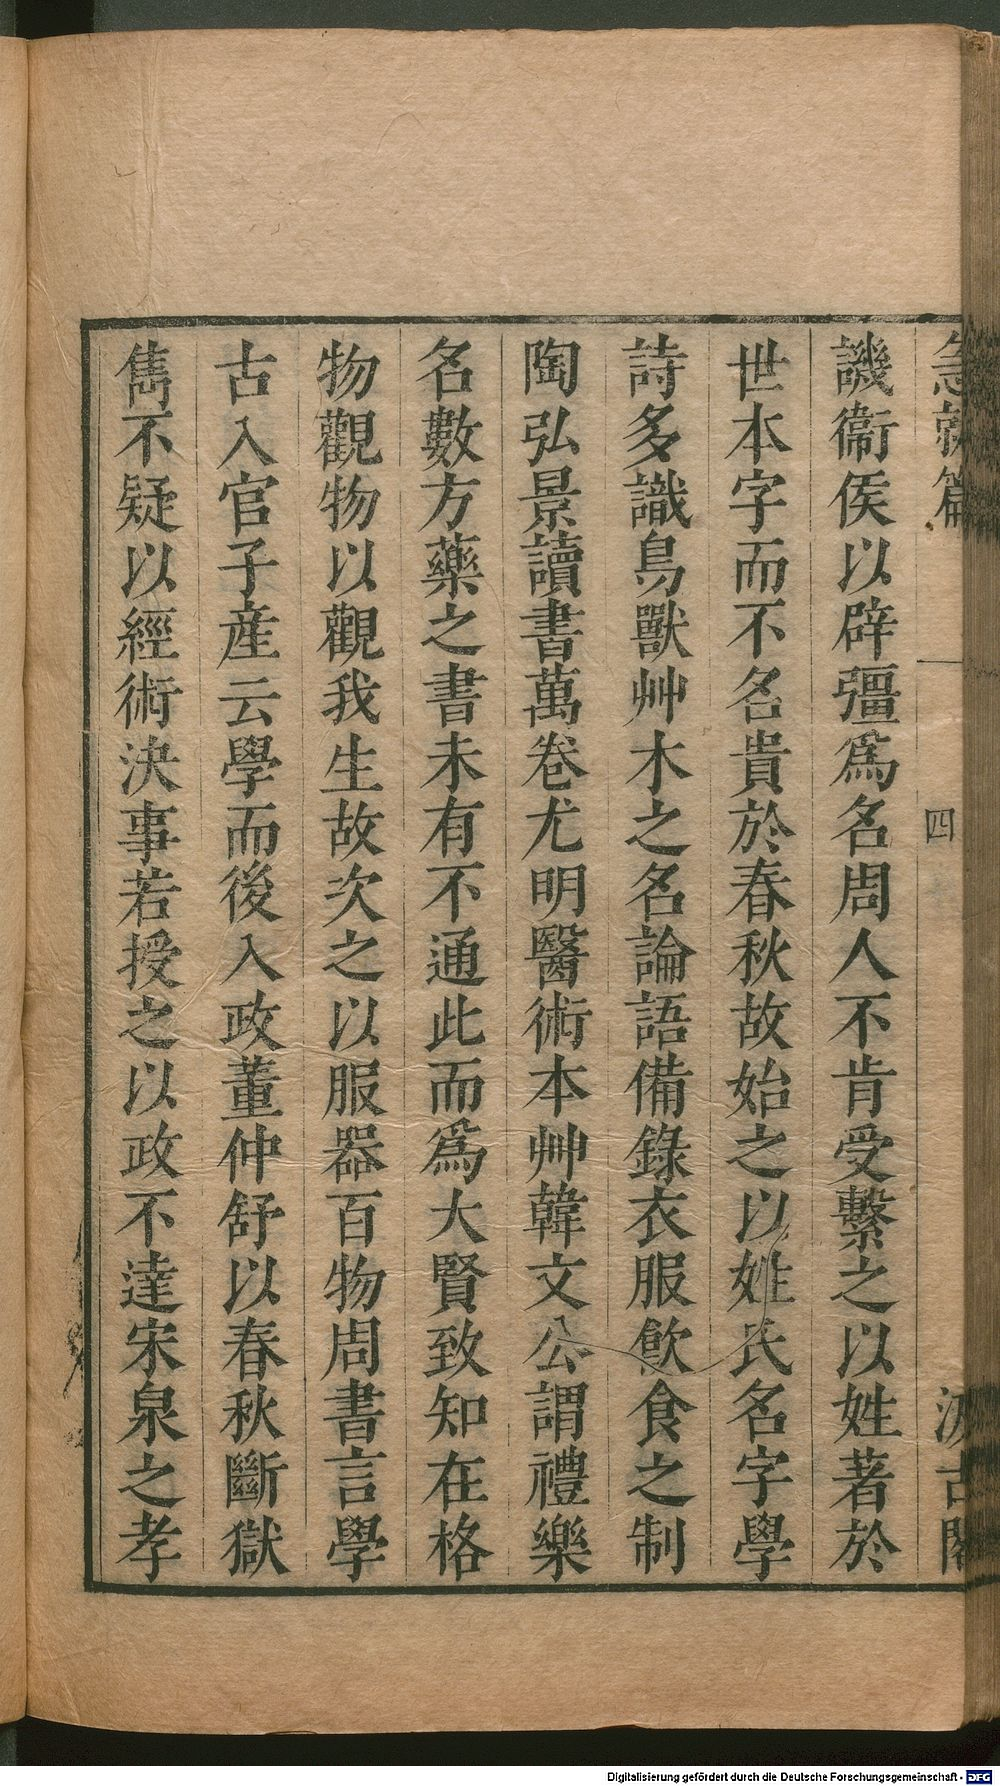 急就篇 四 汲古閣
譏衞侯以辟彊爲名周人不肯受繫之以姓著於
世本字而不名貴於春秋故始之以姓氏名字學
詩多識鳥獸艸木之名論語備錄衣服飲食之制
陶弘景讀書萬卷尤明醫術本艸韓文公謂禮樂
名數方藥之書未有不通此而爲大賢致知在格
物觀物以觀我生故次之以服器百物周書言學
古入官子產云學而後入政董仲舒以春秋斷獄
雋不疑以經術決事若授之以政不達宋梟之孝
Digitalisierung gefördert durch die Deutsche Forschungsgemeinschaft - DFG